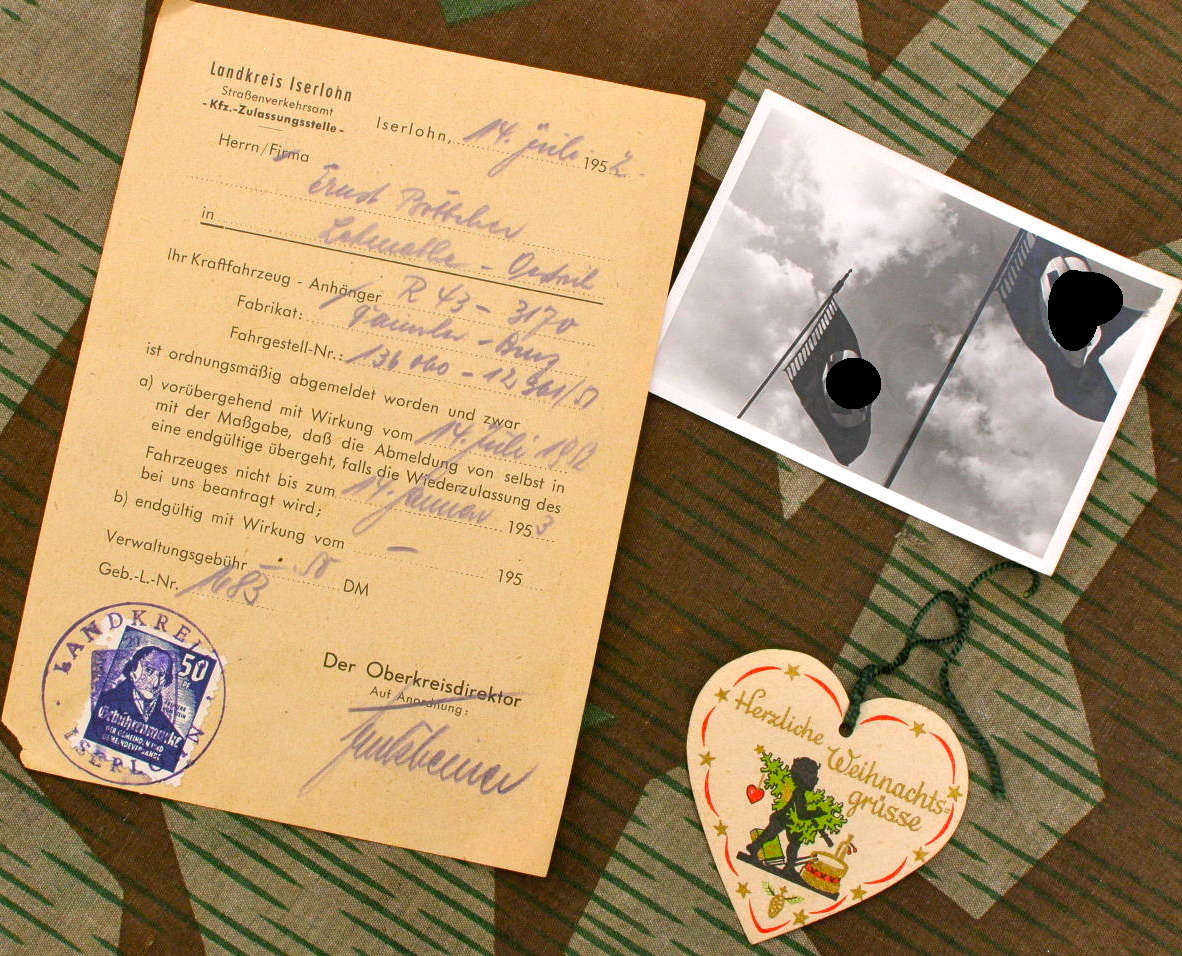 Landkreis Iserlohn
Straßenverkehrsamt
- Kfz.-Zulassungsstelle -
Iserlohn, 14. Juli 1952
Herrn/Firma
Ernst
in
Ihr Kraftfahrzeug - Anhänger R 43 - 3170
Fabrikat: Daimler - Benz
Fahrgestell-Nr.: 136 060 -
ist ordnungsmäßig abgemeldet worden und zwar
a) vorübergehend mit Wirkung vom 14. Juli 1952
mit der Maßgabe, daß die Abmeldung von selbst in
eine endgültige übergeht, falls die Wiederzulassung des
Fahrzeuges nicht bis zum 14. Januar 1953
bei uns beantragt wird;
b) endgültig mit Wirkung vom — 195
Verwaltungsgebühr -.50 DM
Geb.-L.-Nr. 1683
Der Oberkreisdirektor
Auf Anordnung:
LANDKREIS
ISERLOHN
50
Gebührenmarke
DER GEMEINDEN UND
GEMEINDEVERBÄNDE
Herzliche
Weihnachts-
grüsse